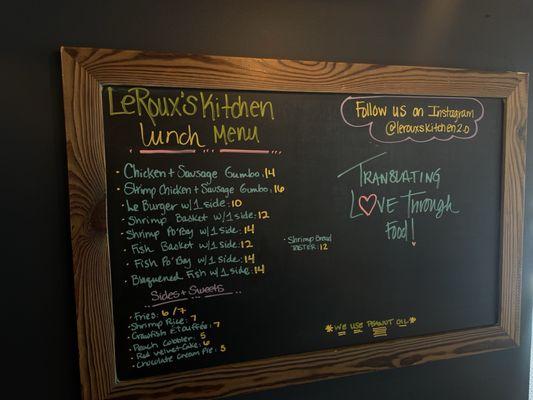 LeRoux's Kitchen
Lunch Menu
• Chicken + Sausage Gumbo: 14
• Shrimp Chicken + Sausage Gumbo: 16
• Le Burger w/1 side: 10
• Shrimp Basket w/1 side: 12
• Shrimp Po'Boy w/1 side: 14
• Fish Basket w/1 side: 12
• Fish Po'Boy w/1 side: 14
• Blaquened Fish w/1 side: 14
Sides + Sweets
• Fries: 6/7
• Shrimp Rice: 7
• Crawfish Étouffée: 7
• Peach Cobbler: 5
• Red Velvet Cake: 6
• Chocolate Cream Pie: 5
• Shrimp Bread
TASTER: 12
Follow us on Instagram
@lerouxskitchen2.0
Translating
Love Through
Food!
*WE USE PEANUT OIL*